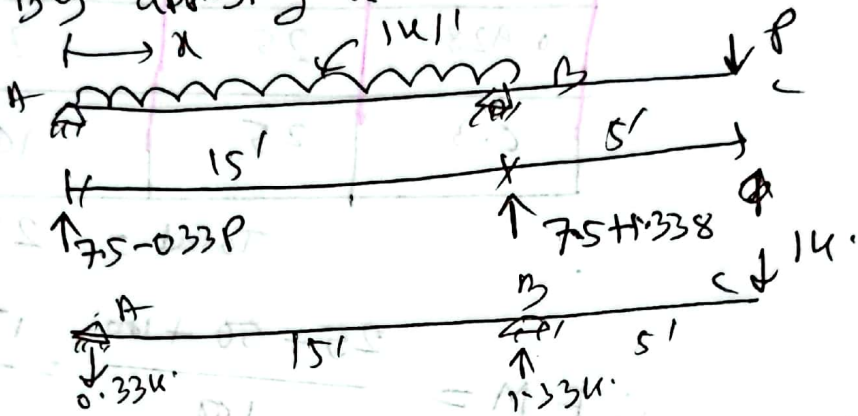 By
x
1k/'
A B P C
15' 5'
7.5-033P 7.5+1.338
1k.
A B C
15' 5'
0.33k. 1.33k.